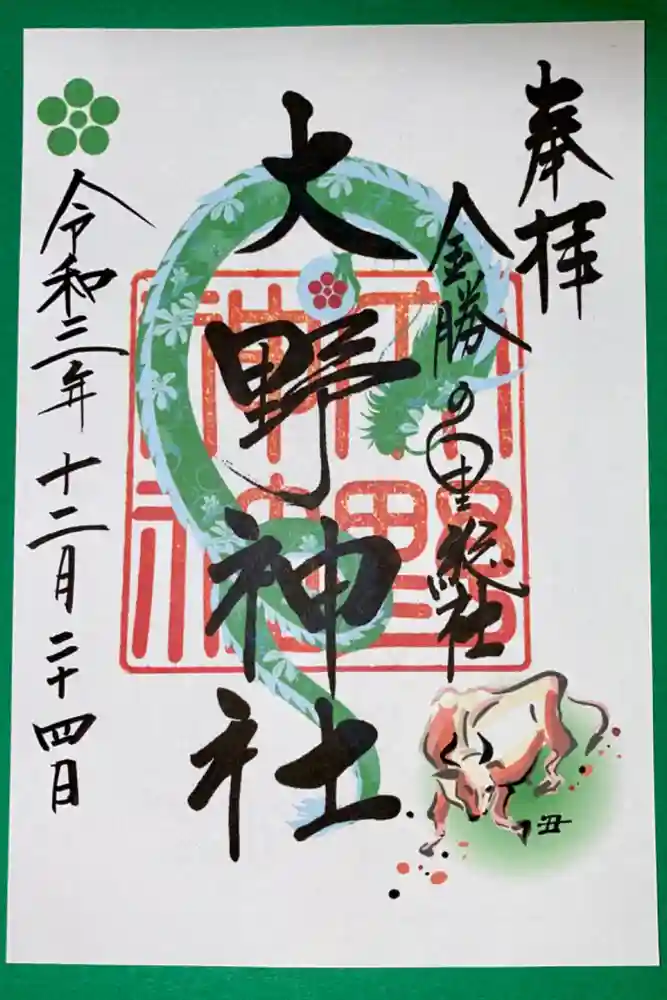 奉拝
金勝の里総社
大野神社
令和三年十二月二十四日
丑